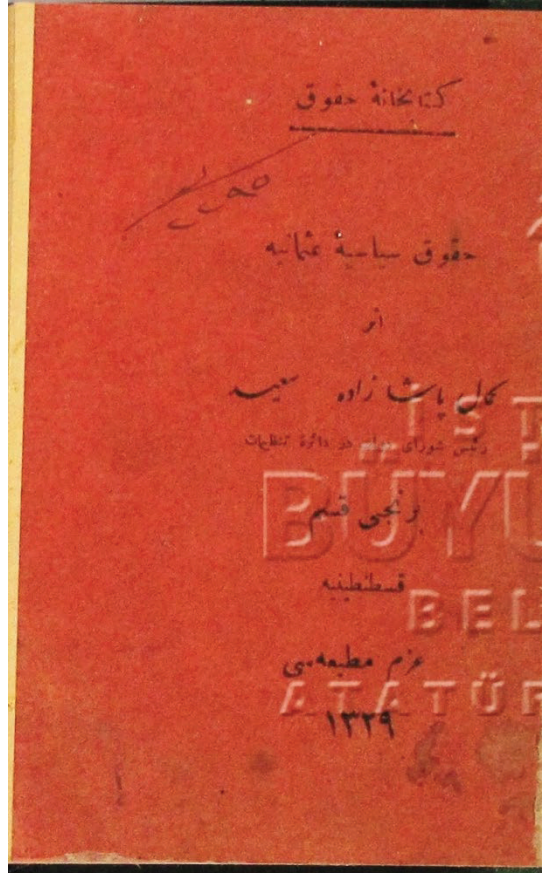 كتابخانۀ حقوق
حقوق سياسيۀ عثمانيه
اثر
كمال پاشا زاده سعيد
رئيس شوراى دولت در دائرۀ تنظيمات
برنجى قسم
قسطنطينيه
عزم مطبعه‌سى
١٣٢٩
İST
BÜYÜ
BEL
ATATÜR